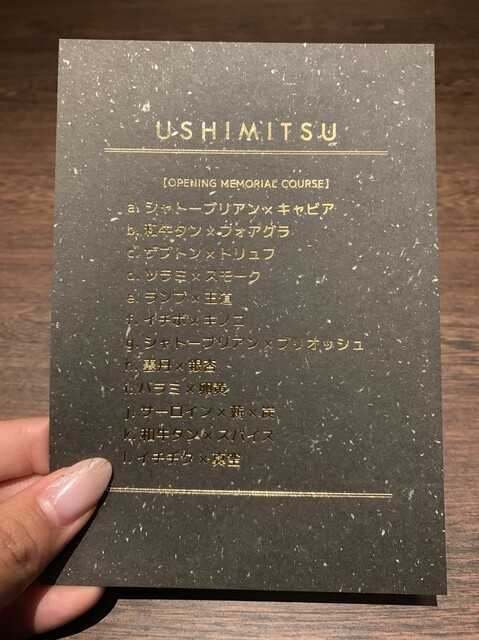 USHIMITSU
【OPENING MEMORIAL COURSE】
a. シャトーブリアン×キャビア
b. 和牛タン×フォアグラ
c. ザブトン×トリュフ
d. ツラミ×スモーク
e. ランプ×王道
f. イチボ×キノコ
g. シャトーブリアン×ブリオッシュ
h. ×銀杏
i. ハラミ×卵黄
j. サーロイン×薪×炭
k. 和牛タン×スパイス
l. イチヂク×